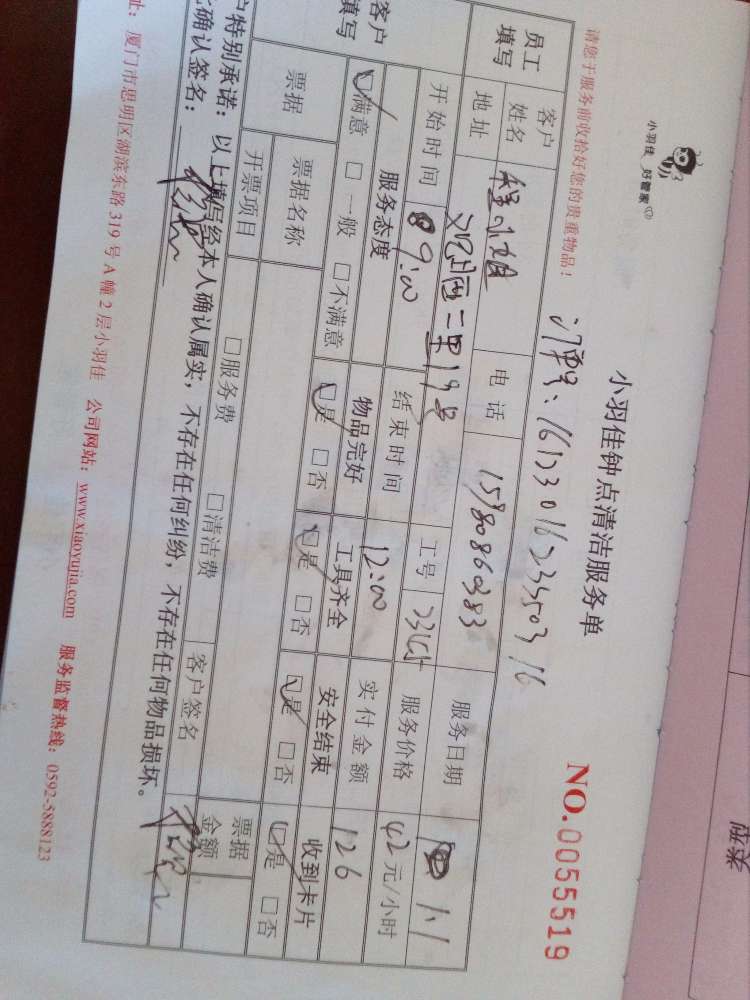 小羽佳 好管家
小羽佳钟点清洁服务单
NO.0055519
请您于服务前收拾好您的贵重物品！
员工填写 客户姓名 程小姐 电话 15980860383 服务日期
地址 西二里19号 工号 服务价格 42元/小时
开始时间 9:00 结束时间 12:00 实付金额 126
客户填写 服务态度 物品完好 工具齐全 安全结束 收到卡片
☑满意 □一般 □不满意 ☑是 □否 ☑是 □否 ☑是 □否 ☑是 □否
票据 票据名称 票据金额
开票项目 □服务费 □清洁费 客户签名
户特别承诺：以上填写经本人确认属实，不存在任何纠纷，不存在任何物品损坏。
确认签名：
址：厦门市思明区湖滨东路319号A幢2层小羽佳 公司网站：www.xiaoyujia.com 服务监督热线：0592-5888123